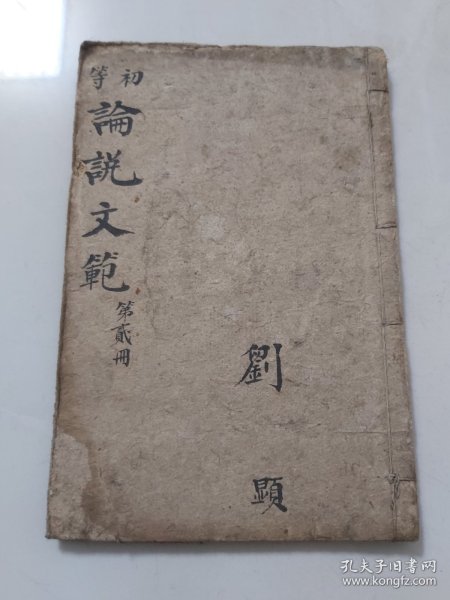 初等
論説文範
第貳冊
劉顕
孔夫子旧书网
www.kongfz.com